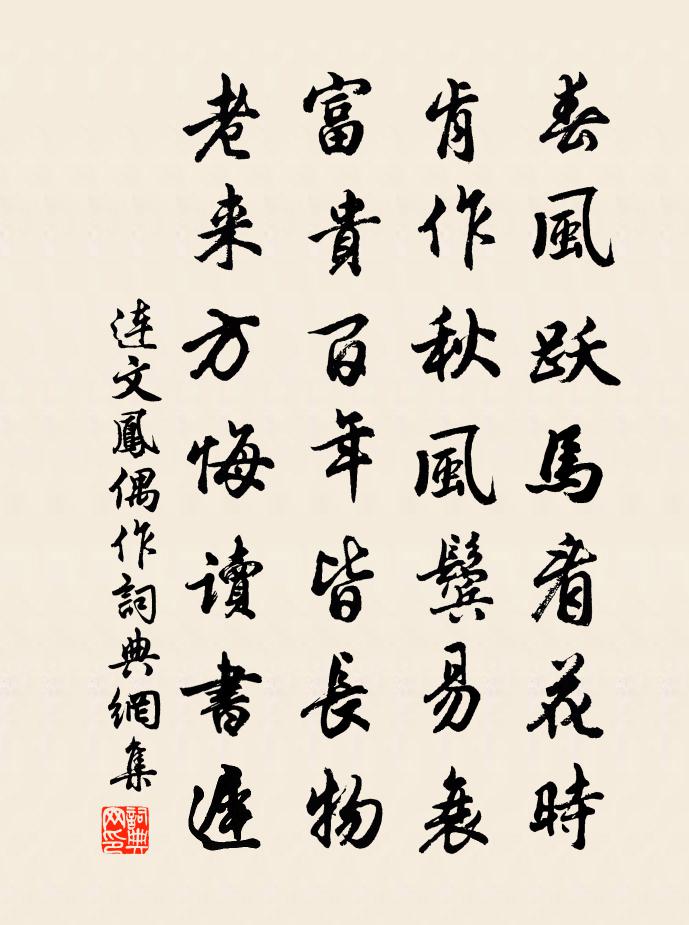 春風跃馬看花時
肯作秋風鬓易衰
富貴百年皆長物
老来方悔读書遲
连文鳳偶作詞典網集
詞典网印